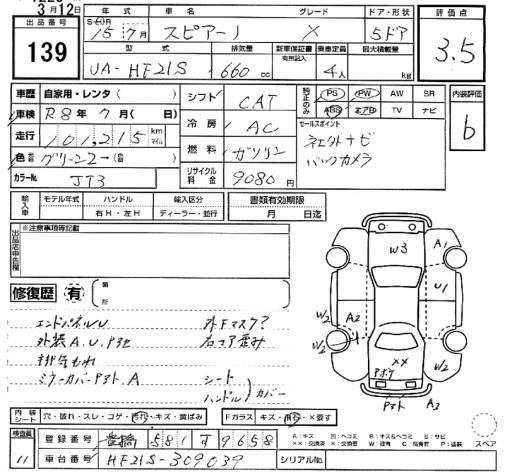 3月12日
出品番号
139
年式 車名 グレード ドア・形状
15年7月 スピアーノ X 5ドア
型式 排気量 新車保証書 有無記入 乗車定員 最大積載量
UA-HF21S 660cc 4人 kg
評価点
3.5
車歴 自家用・レンタ( )
車検 R8年7月( 日)
走行 101,215 km マイル
色 グリーン2→(
カラーNo. JT3
シフト CAT
冷房 AC
燃料 ガソリン
リサイクル料金 9080円
純正のみ PS PW AW SR
ABS エアB TV ナビ
セールスポイント
社外ナビ
バックカメラ
内装評価
b
輸入車 モデル年式 ハンドル 輸入区分
右H・左H ディーラー・並行
書類有効期限
月 日迄
※注意事項等記載
修復歴 有
箇所
エンドパネルU
外装A.U.Pヨセ
排気もれ
ミラーカバーPヨト.A
右コア歪み
シート
ハンドル
カバー
W3
A1
U1
A2
W2
W2
W2
Aボケ
××
Pヨト
A3
内装シート 穴・破れ・スレ・コゲ・汚れ・キズ・黄ばみ
Fガラス キズ・飛石・×要す
スペア
検査員
11
登録番号 豊橋 581 す 9658
車台番号 HF21S-309039
シリアルNo.